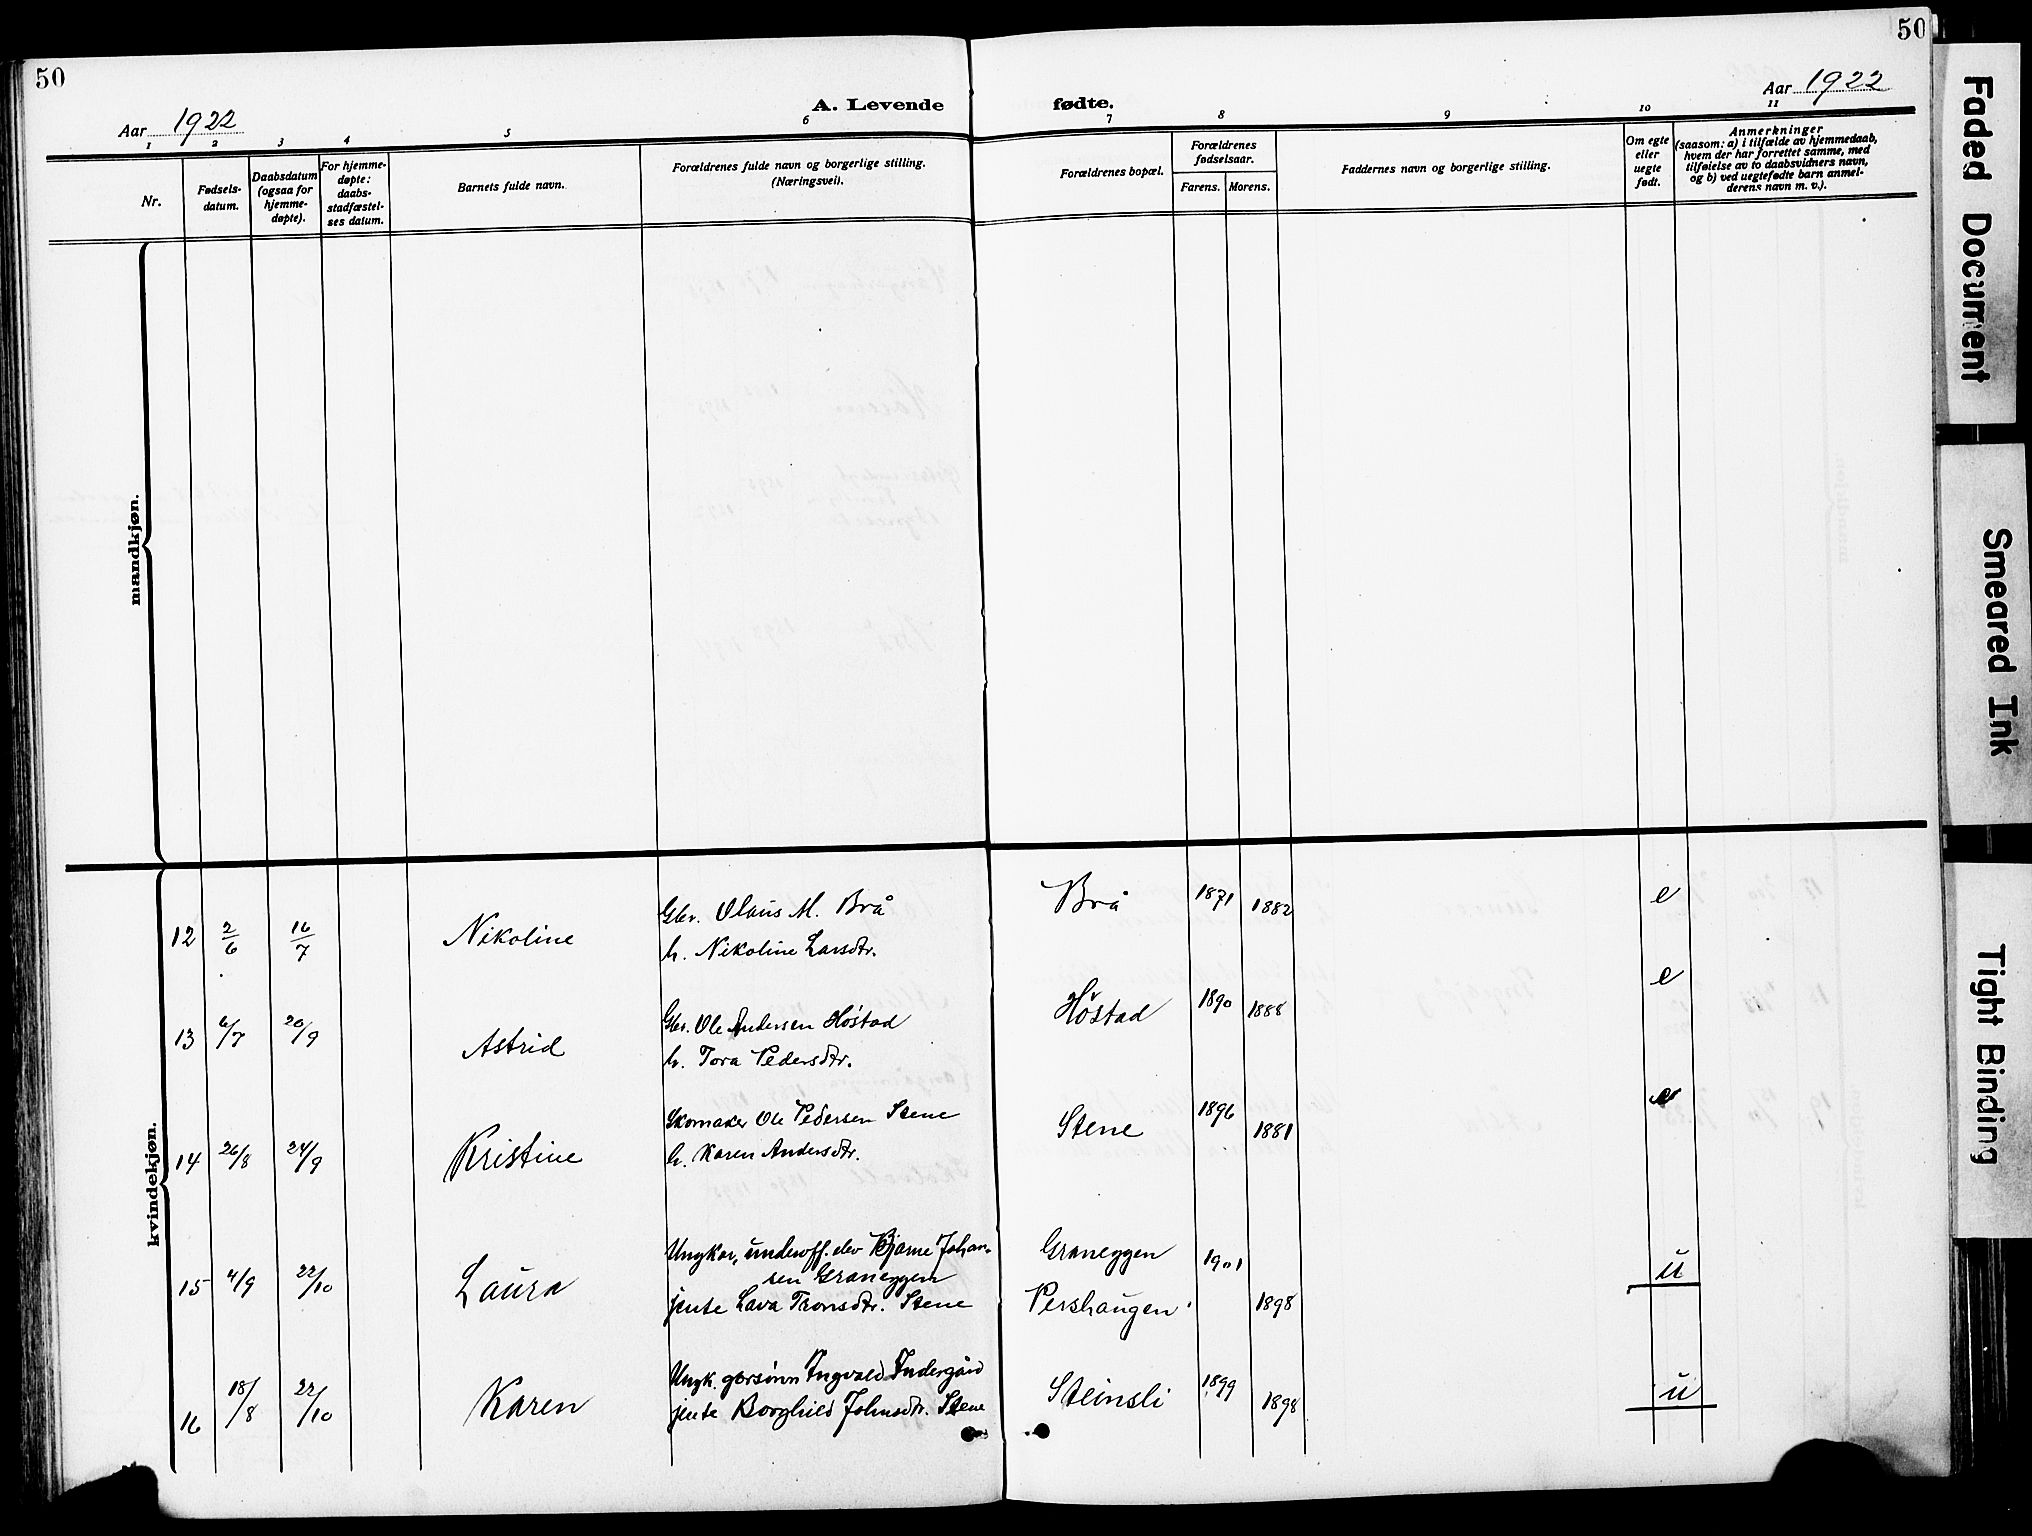 50
50
Aar 1922
A. Levende fødte.
Aar 1922
1 2 3 4 5 6 7 8 9 10 11
Nr.
Fødsels-
datum.
Daabsdatum
(ogsaa for
hjemme-
døpte).
For hjemme-
døpte:
daabs-
stadfæstel-
ses datum.
Barnets fulde navn.
Forældrenes fulde navn og borgerlige stilling.
(Næringsvei).
Forældrenes bopæl.
Forældrenes
fødselsaar.
Farens. Morens.
Faddernes navn og borgerlige stilling.
Om egte
eller
uegte
født.
Anmerkninger
(saasom: a) i tilfælde av hjemmedaab,
hvem der har forrettet samme, med
tilføielse av to daabsvidners navn,
og b) ved uegtefødte barn anmel-
derens navn m. v.).
mandkjøn.
kvindekjøn.
12 2/6 16/7 Nikoline Gbr. Olaus M. Brå Brå 1871 1882 e
h. Nikoline Larsdtr.
13 6/7 20/9 Astrid Gbr. Ole Andersen Høstad Høstad 1890 1888 e
h. Tora Pedersdtr.
14 26/8 24/9 Kristine Skomaker Ole Pedersen Stene Stene 1896 1881 e
h. Karen Andersdtr.
15 4/9 22/10 Laura Ungkar, underoff. elev Bjarne Johan-
sen Graneggen Graneggen 1901 u
jente Lava Tronsdtr. Stene Pershaugen 1898
16 18/8 22/10 Karen Ungk. gbrsønn Ingvald Indergård Steinsli 1899 1898 u
jente Borghild Johnsdtr. Stene
Faded Document
Smeared Ink
Tight Binding